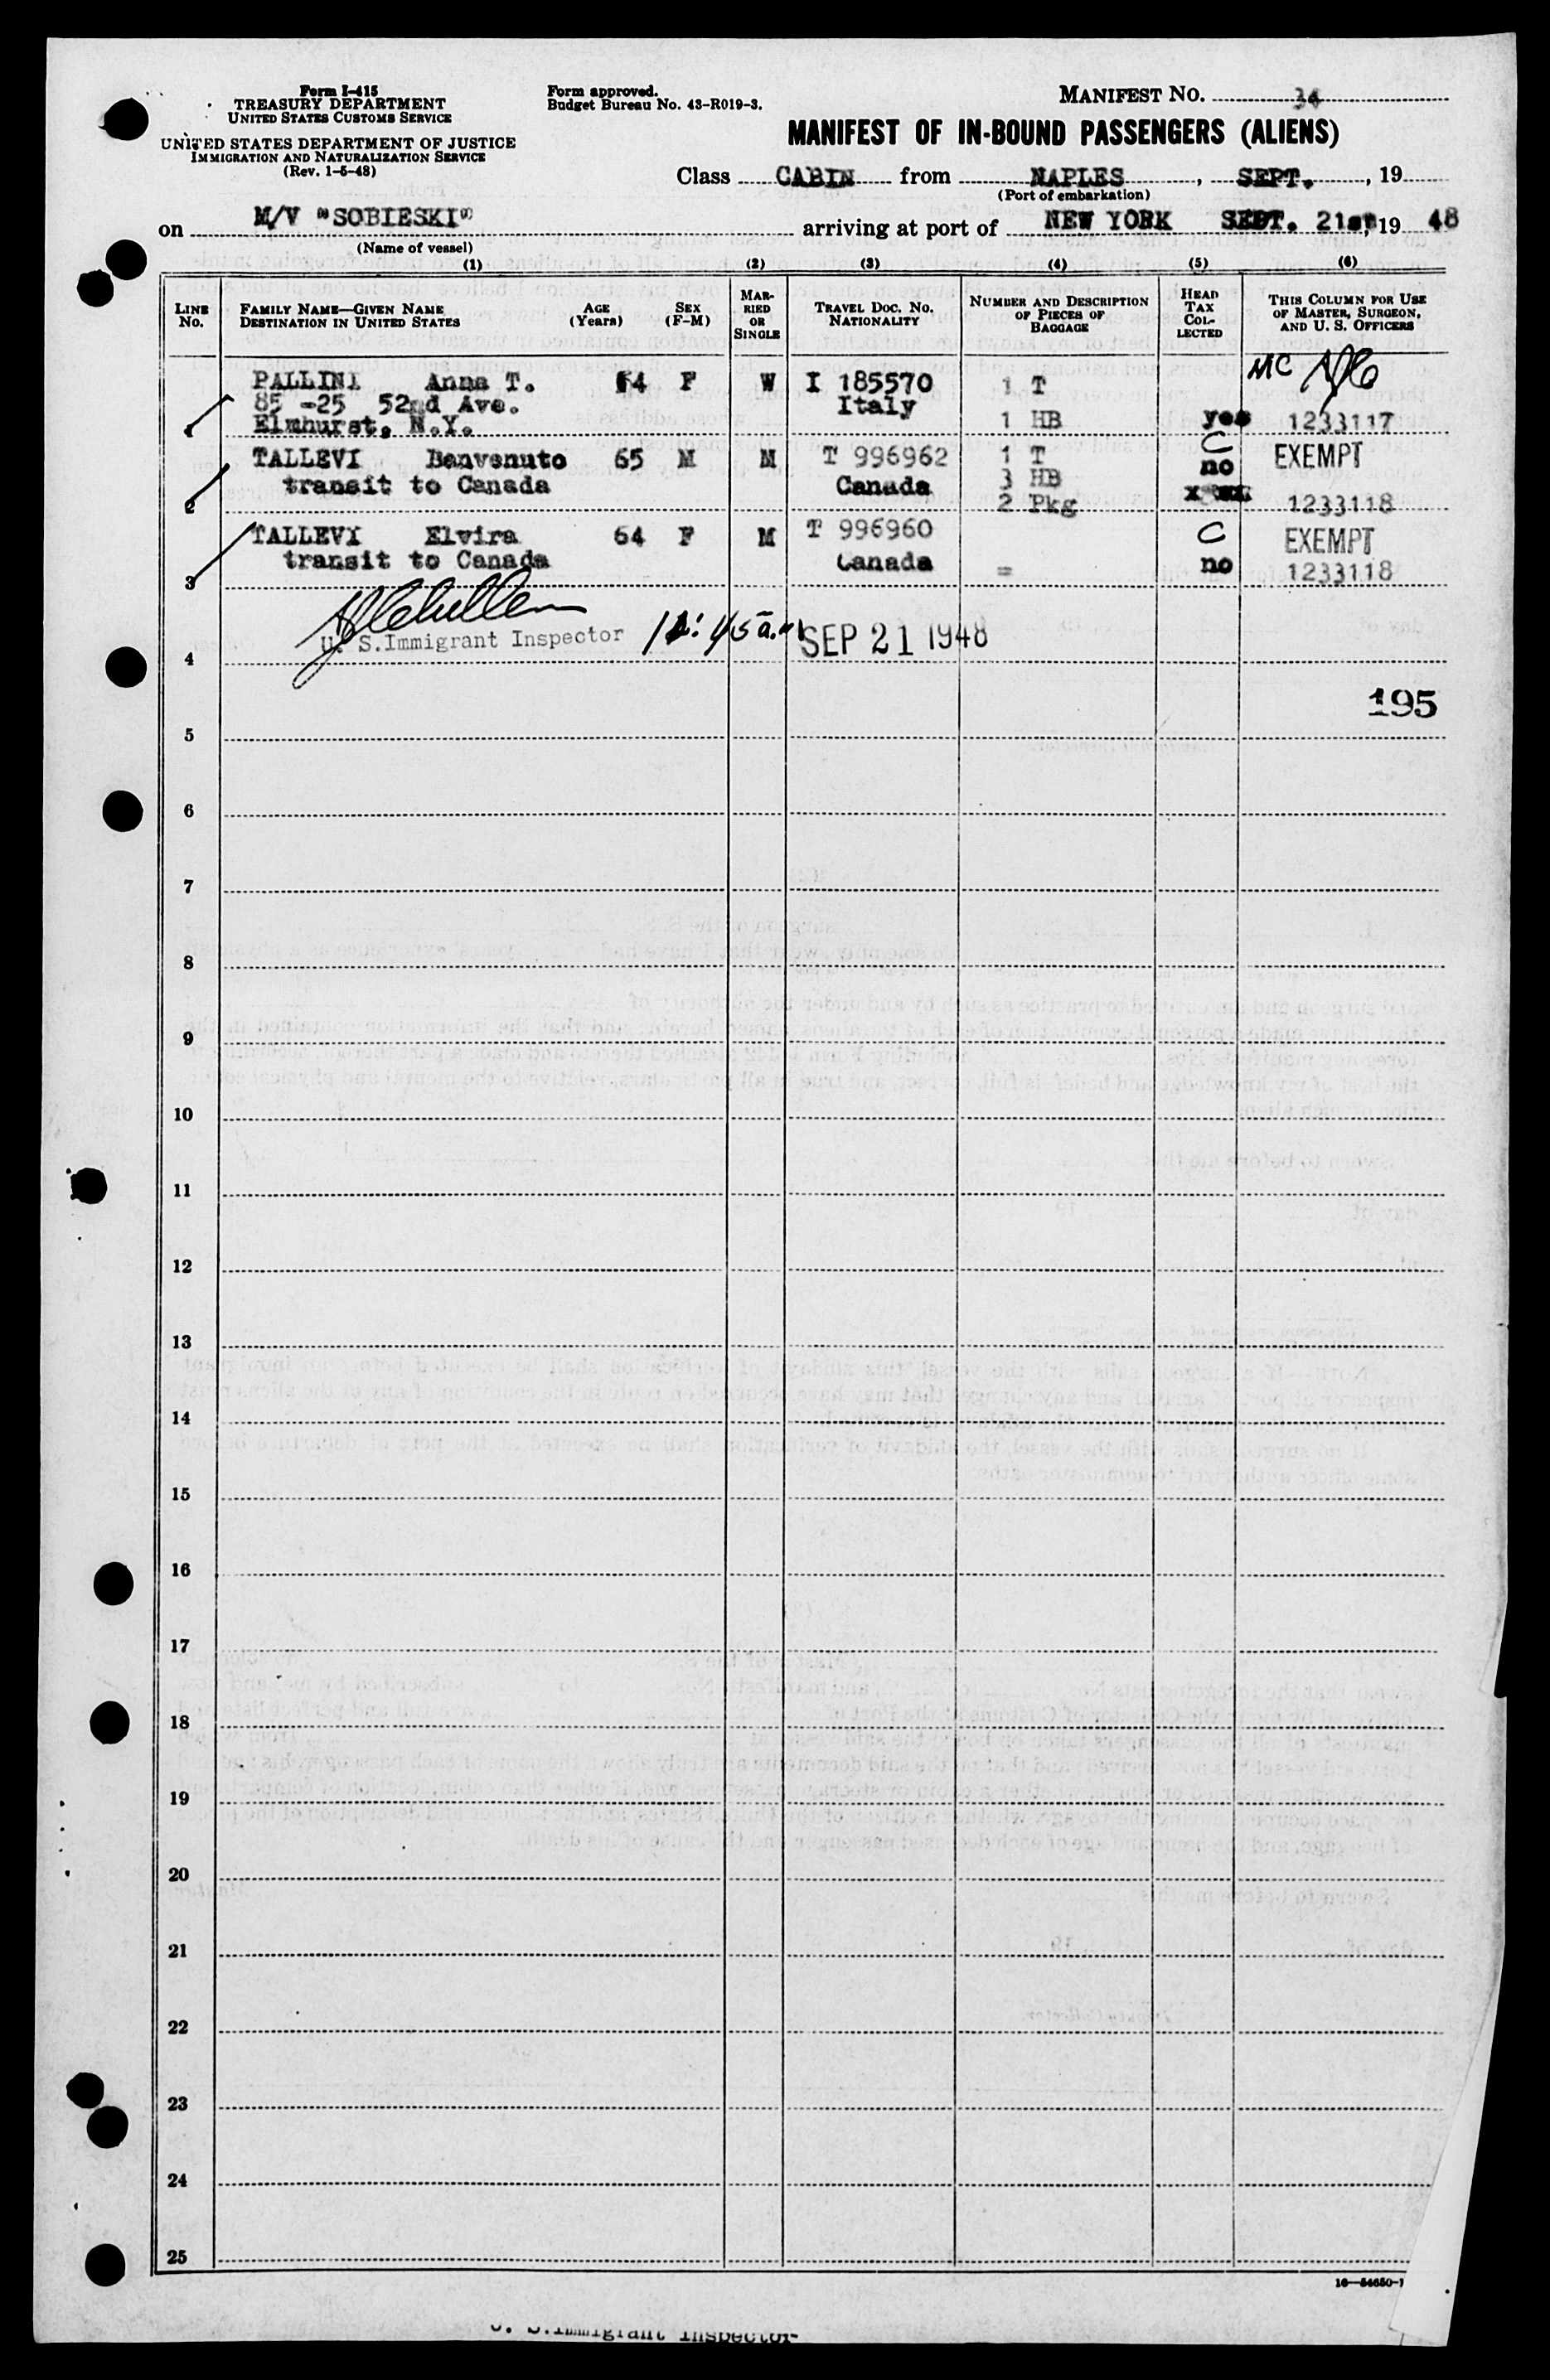 Form I-415
TREASURY DEPARTMENT
UNITED STATES CUSTOMS SERVICE
UNITED STATES DEPARTMENT OF JUSTICE
IMMIGRATION AND NATURALIZATION SERVICE
(Rev. 1-5-48)
Form approved.
Budget Bureau No. 43-R019-3.
MANIFEST NO. 34
MANIFEST OF IN-BOUND PASSENGERS (ALIENS)
Class CABIN from NAPLES, SEPT., 19
(Port of embarkation)
on M/V "SOBIESKI" arriving at port of NEW YORK SEPT. 21st, 19 48
(Name of vessel)
(1) (2) (3) (4) (5) (6)
LINE No. FAMILY NAME—GIVEN NAME DESTINATION IN UNITED STATES AGE (Years) SEX (F-M) MARRIED OR SINGLE TRAVEL DOC. NO. NATIONALITY NUMBER AND DESCRIPTION OF PIECES OF BAGGAGE HEAD TAX COLLECTED THIS COLUMN FOR USE OF MASTER, SURGEON, AND U. S. OFFICERS
PALLINI Anna T. 64 F W I 185570 1 T MC
85 -25 52nd Ave. Italy
1 Elmhurst, N.Y. 1 HB yes 1233117
TALLEVI Benvenuto 65 M M T 996962 1 T C EXEMPT
transit to Canada Canada 3 HB no
2 2 Pkg 1233118
TALLEVI Elvira 64 F M T 996960 C EXEMPT
transit to Canada Canada = no 1233118
3
U. S. Immigrant Inspector SEP 21 1948
4
195
5
6
7
8
9
10
11
12
13
14
15
16
17
18
19
20
21
22
23
24
25
16—54650-1
U. S. Immigrant Inspector